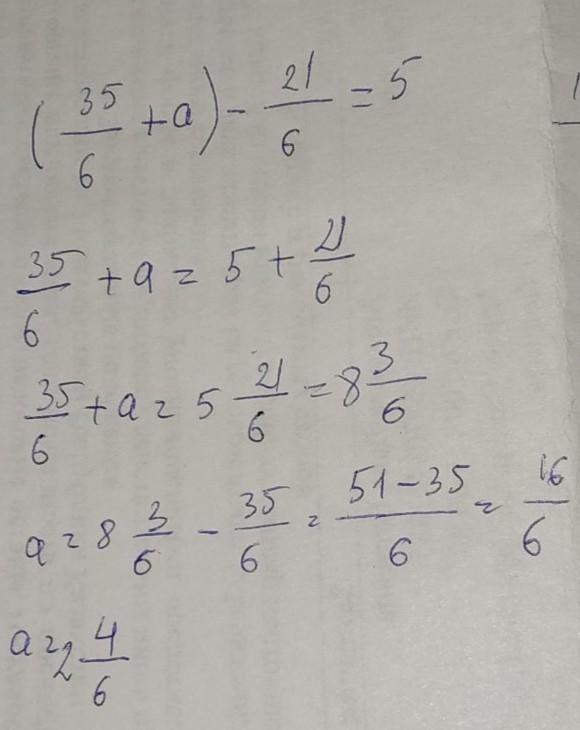 (35/6 + a) - 21/6 = 5
35/6 + a = 5 + 21/6
35/6 + a = 5 21/6 = 8 3/6
a = 8 3/6 - 35/6 = 51-35/6 = 16/6
a = 2 4/6